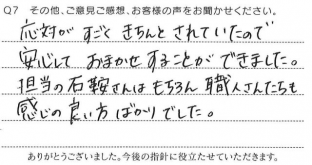 Q7 その他、ご意見ご感想、お客様の声をお聞かせください。
応対が すごく きちんと されていたので
安心して おまかせ することが できました。
担当の石鞍さんは もちろん 職人さんたちも
感じの良い方 ばかりでした。
ありがとうございました。今後の指針に役立たせていただきます。